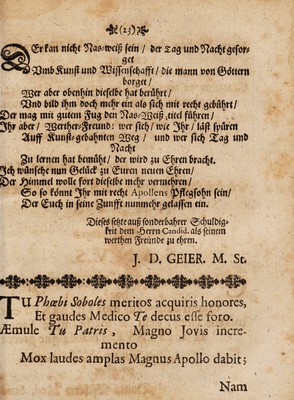 (23)
DEr kan nicht Nas-weiß sein / der Tag und Nacht gesor-
get
Umb Kunst und Wissenschafft / die mann von Göttern
borget /
Wer aber obenhin dieselbe hat berührt /
Und bild ihm doch mehr ein als sich mit recht gebührt /
Der mag mit gutem Fug den Nas-Weiß titel führen /
Ihr aber / Werther-Freund: wer sich / wie Ihr / läst spüren
Auff Kunst-gebahnten Weg / und wer sich Tag und
Nacht
Zu lernen hat bemüht / der wird zu Ehren bracht.
Ich wünsche nun Gelück zu Euren neuen Ehren /
Der Himmel wolle fort dieselbe mehr vermehren /
So so könnt Ihr mit recht Apollens Pflegsohn sein /
Der Euch in seine Zunfft nunmehr gelassen ein.
Dieses setzte auß sonderbahrer Schuldig-
keit dem Herrn Candid. als seinem
werthen Freunde zu ehren.
J. D. GEIER. M. St.
TU Phœbi Soboles meritos acquiris honores,
Et gaudes Medico Te decus esse foro.
Æmule Tu Patris, Magno Jovis incre-
mento
Mox laudes amplas Magnus Apollo dabit;
Nam